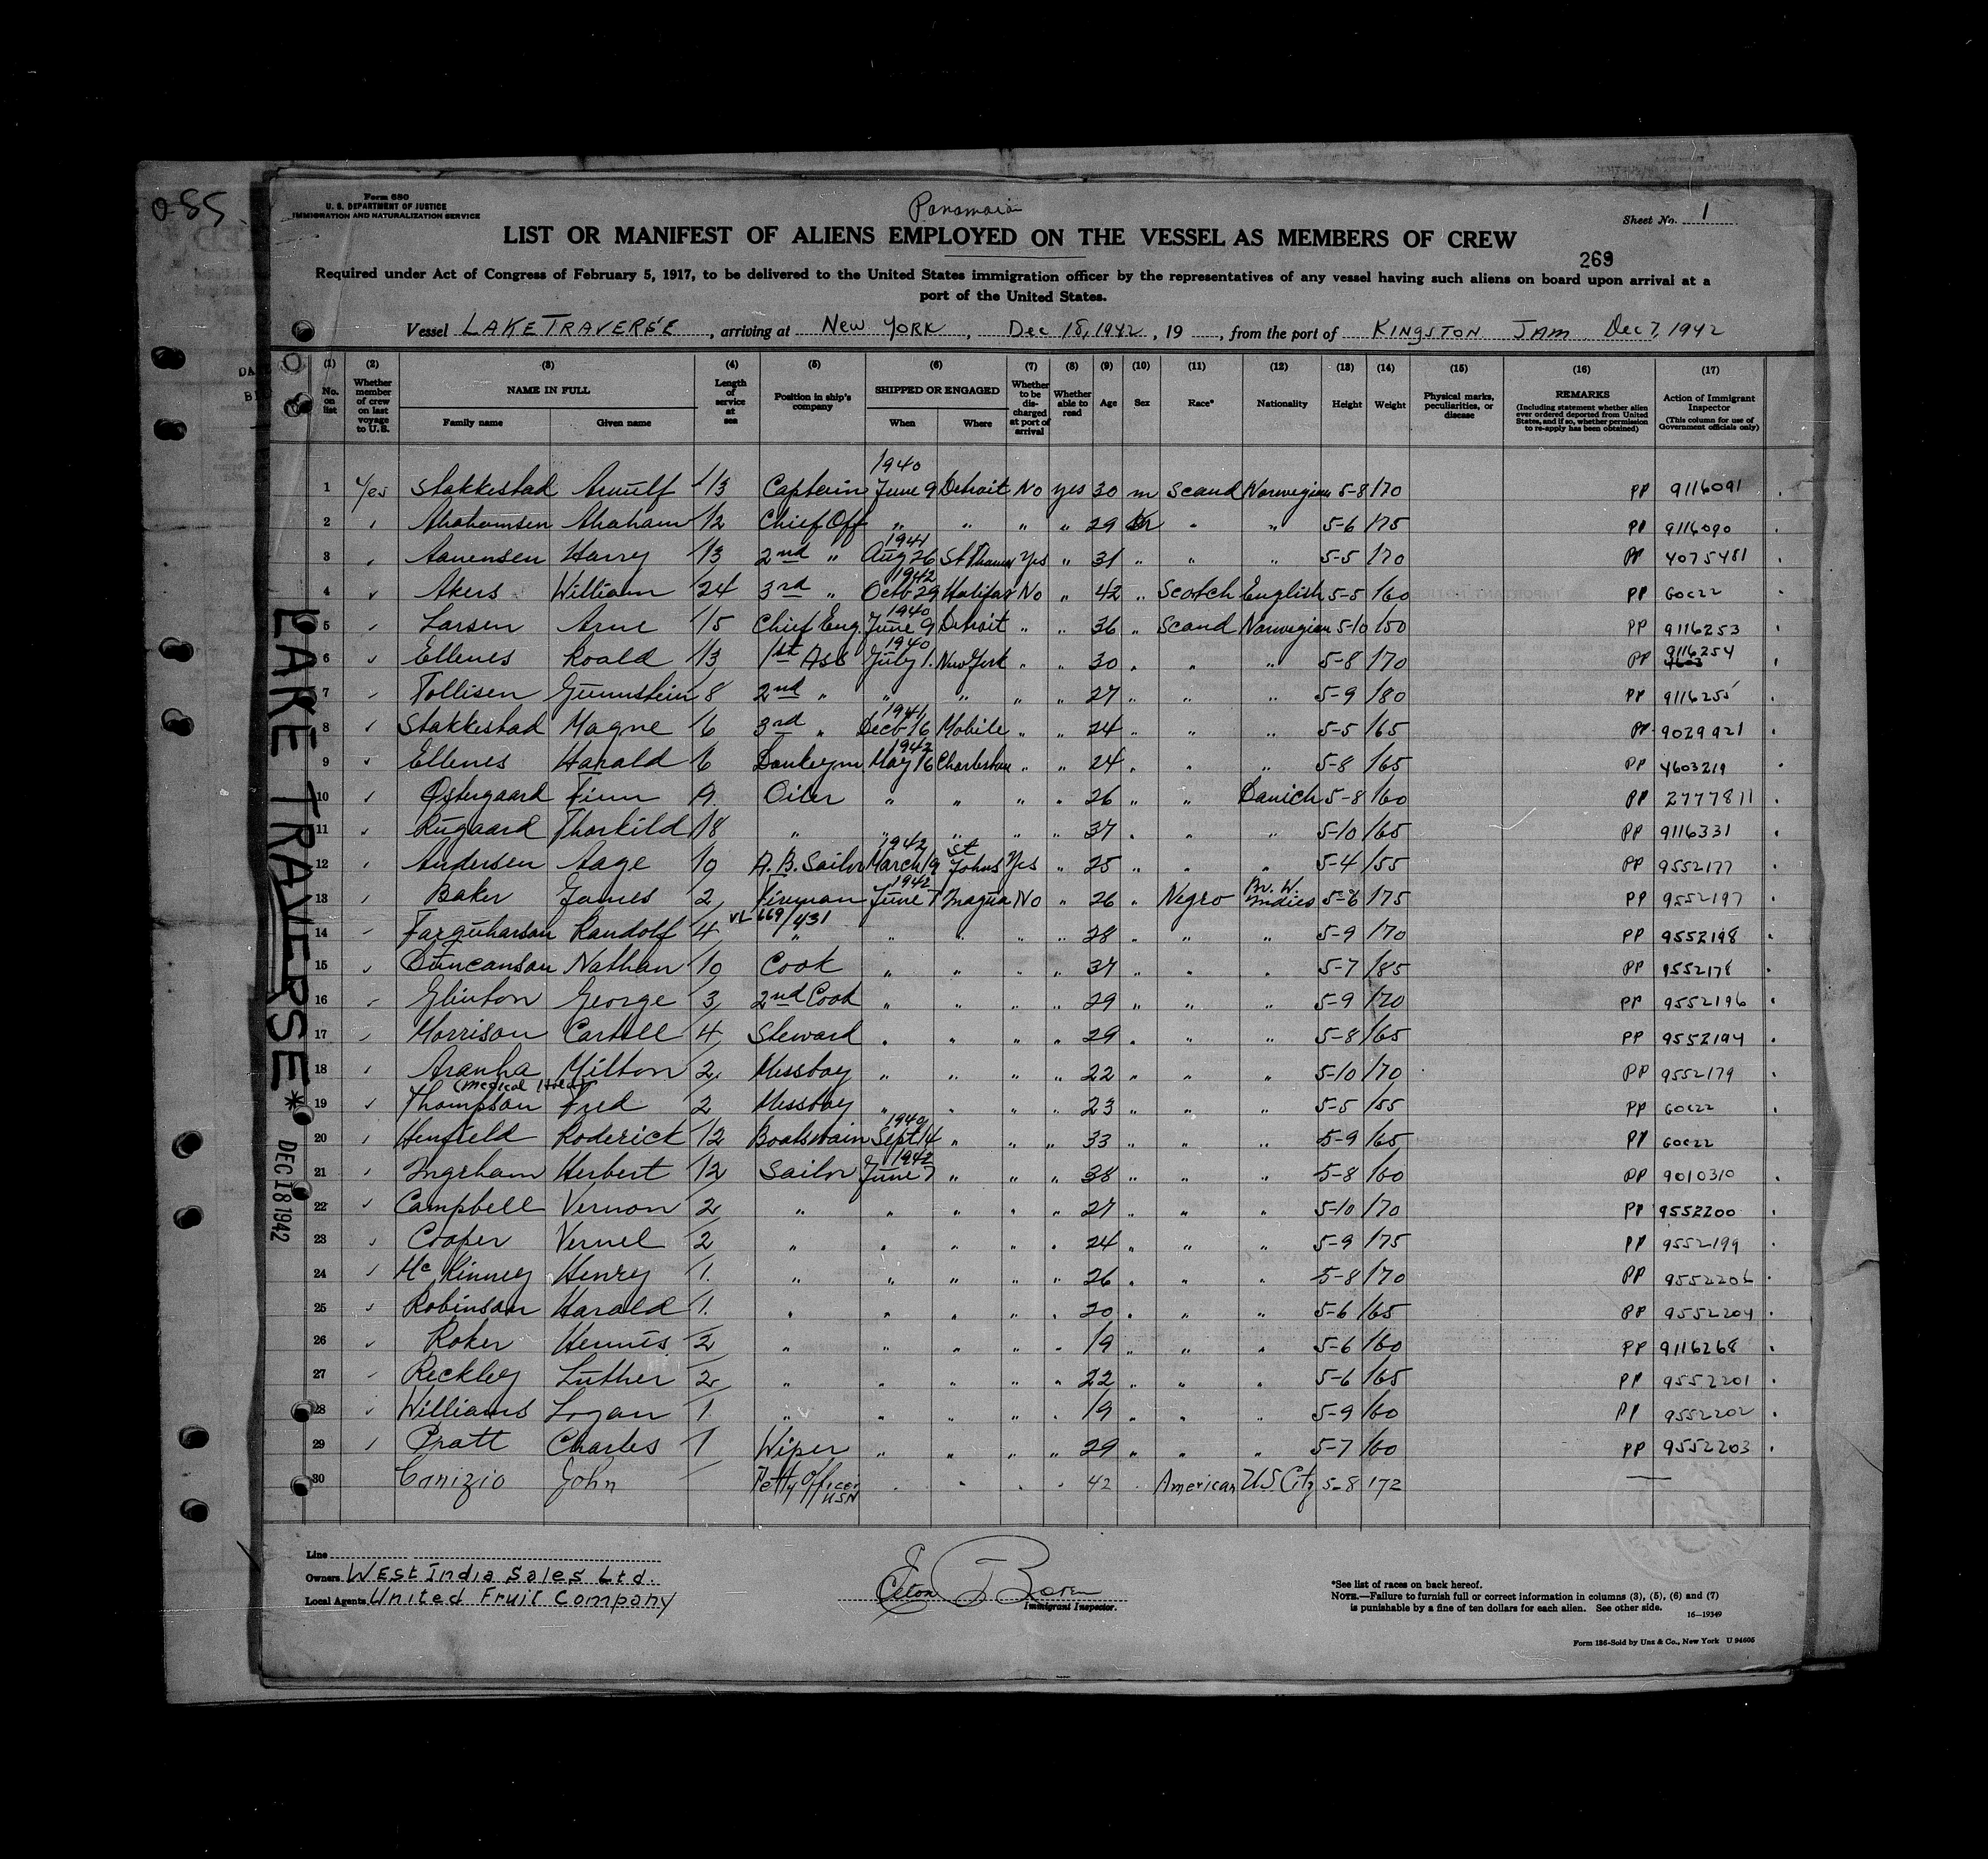 085
Form 680
U. S. DEPARTMENT OF JUSTICE
IMMIGRATION AND NATURALIZATION SERVICE
Panamaian
Sheet No. 1
LIST OR MANIFEST OF ALIENS EMPLOYED ON THE VESSEL AS MEMBERS OF CREW
269
Required under Act of Congress of February 5, 1917, to be delivered to the United States immigration officer by the representatives of any vessel having such aliens on board upon arrival at a
port of the United States.
Vessel LAKE TRAVERSE, arriving at New YORK, Dec 18, 1942, 19, from the port of KINGSTON JAM. Dec 7, 1942
(1) No. on list
(2) Whether member of crew on last voyage to U.S.
(3) NAME IN FULL Family name Given name
(4) Length of service at sea
(5) Position in ship's company
(6) SHIPPED OR ENGAGED When Where
(7) Whether to be discharged at port of arrival
(8) Whether able to read
(9) Age
(10) Sex
(11) Race*
(12) Nationality
(13) Height
(14) Weight
(15) Physical marks, peculiarities, or disease
(16) REMARKS (Including statement whether alien ever ordered deported from United States, and if so, whether permission to re-apply has been obtained)
(17) Action of Immigrant Inspector (This column for use of Government officials only)
1 Yes Stakkestad Arnulf 13 Captain 1940 June 9 Detroit No yes 30 m Scand Norwegian 5-8 170 PP 9116091
2 " Abrahamsen Abraham 12 Chief Off " " " " 29 " " 5-6 175 PP 9116090
3 " Aanensen Harry 13 2nd " 1941 Aug 26 St Thomas Yes " 31 " " " 5-5 170 PP 4075481
4 " Akers William 24 3rd " 1942 Octb 29 Halifax No " 42 " Scotch English 5-5 160 PP
5 " Larsen Arne 15 Chief Eng. 1940 June 9 Detroit " " 36 " Scand Norwegian 5-10 150 PP 9116253
6 " Ellenes Roald 13 1st Ass 1940 July 1. New York " " 30 " " " 5-8 170 PP 9116254
7 " Tollisen Gunnstein 8 2nd " " " " " 27 " " " 5-9 180 PP 9116255
8 " Stakkestad Magne 6 3rd " 1941 Decb 16 Mobile " " 24 " " " 5-5 165 PP 9029921
9 " Ellenes Harald 6 Donkeym 1942 May 16 Charleston " " 24 " " " 5-8 165 PP 4603219
10 " Østergaard Finn 9. Oiler " " " " 26 " " Danich 5-8 160 PP 2777811
11 " Rugaard Thorkild 18 " " " " " 37 " " " 5-10 165 PP 9116331
12 " Andersen Aage 10 A.B. Sailor 1942 March 19 St Johns Yes " 25 " " " 5-4 155 PP 9552177
13 " Baker James 2 Fireman 1942 June 7 Inagua No " 26 " Negro Br. W. Indies 5-6 175 PP 9552197
VL 669/431
14 " Farquharson Randolf 4 " " " " " 28 " " " 5-9 170 PP 9552198
15 " Duncanson Nathan 10 Cook " " " " 37 " " " 5-7 185 PP 9552178
16 " Glinton George 3 2nd Cook " " " " 29 " " " 5-9 170 PP 9552196
17 " Morrison Cartell 4 Steward " " " " 29 " " " 5-8 165 PP 9552194
18 " Aranha Milton 2 Messboy " " " " 22 " " " 5-10 170 PP 9552179
(Medical Hold)
19 " Thompson Fred 2 Messboy " " " " 23 " " " 5-5 155 PP
20 " Henfield Roderick 12 Boatswain 1940 Sept 14 " " " 33 " " " 5-9 165 PP
21 " Ingraham Herbert 12 Sailor 1942 June 7 " " " 38 " " " 5-8 160 PP 9010310
22 " Campbell Vernon 2 " " " " " 27 " " " 5-10 170 PP 9552200
23 " Cooper Vernel 2 " " " " " 24 " " " 5-9 175 PP 9552199
24 " McKinney Henry 1. " " " " " 26 " " " 5-8 170 PP
25 " Robinson Harald 1. " " " " " 20 " " " 5-6 165 PP 9552204
26 " Roker Hennis 2 " " " " " 19 " " " 5-6 160 PP 9116268
27 " Reckley Luther 2 " " " " " 22 " " " 5-6 165 PP 9552201
28 " Williams Logan 1. " " " " " 19 " " " 5-9 160 PP 9552202
29 " Pratt Charles 1 Wiper " " " " 29 " " " 5-7 160 PP 9552203
30 Canizio John — Petty Officer USN " " " " 42 " American US City 5-8 172 —
LAKE TRAVERSE* DEC 18 1942
Line
Owners West India Sales Ltd.
Local Agents United Fruit Company
Immigrant Inspector.
*See list of races on back hereof.
NOTE.—Failure to furnish full or correct information in columns (3), (5), (6) and (7)
is punishable by a fine of ten dollars for each alien. See other side.
16—19349
Form 136-Sold by Unz & Co., New York U 94605